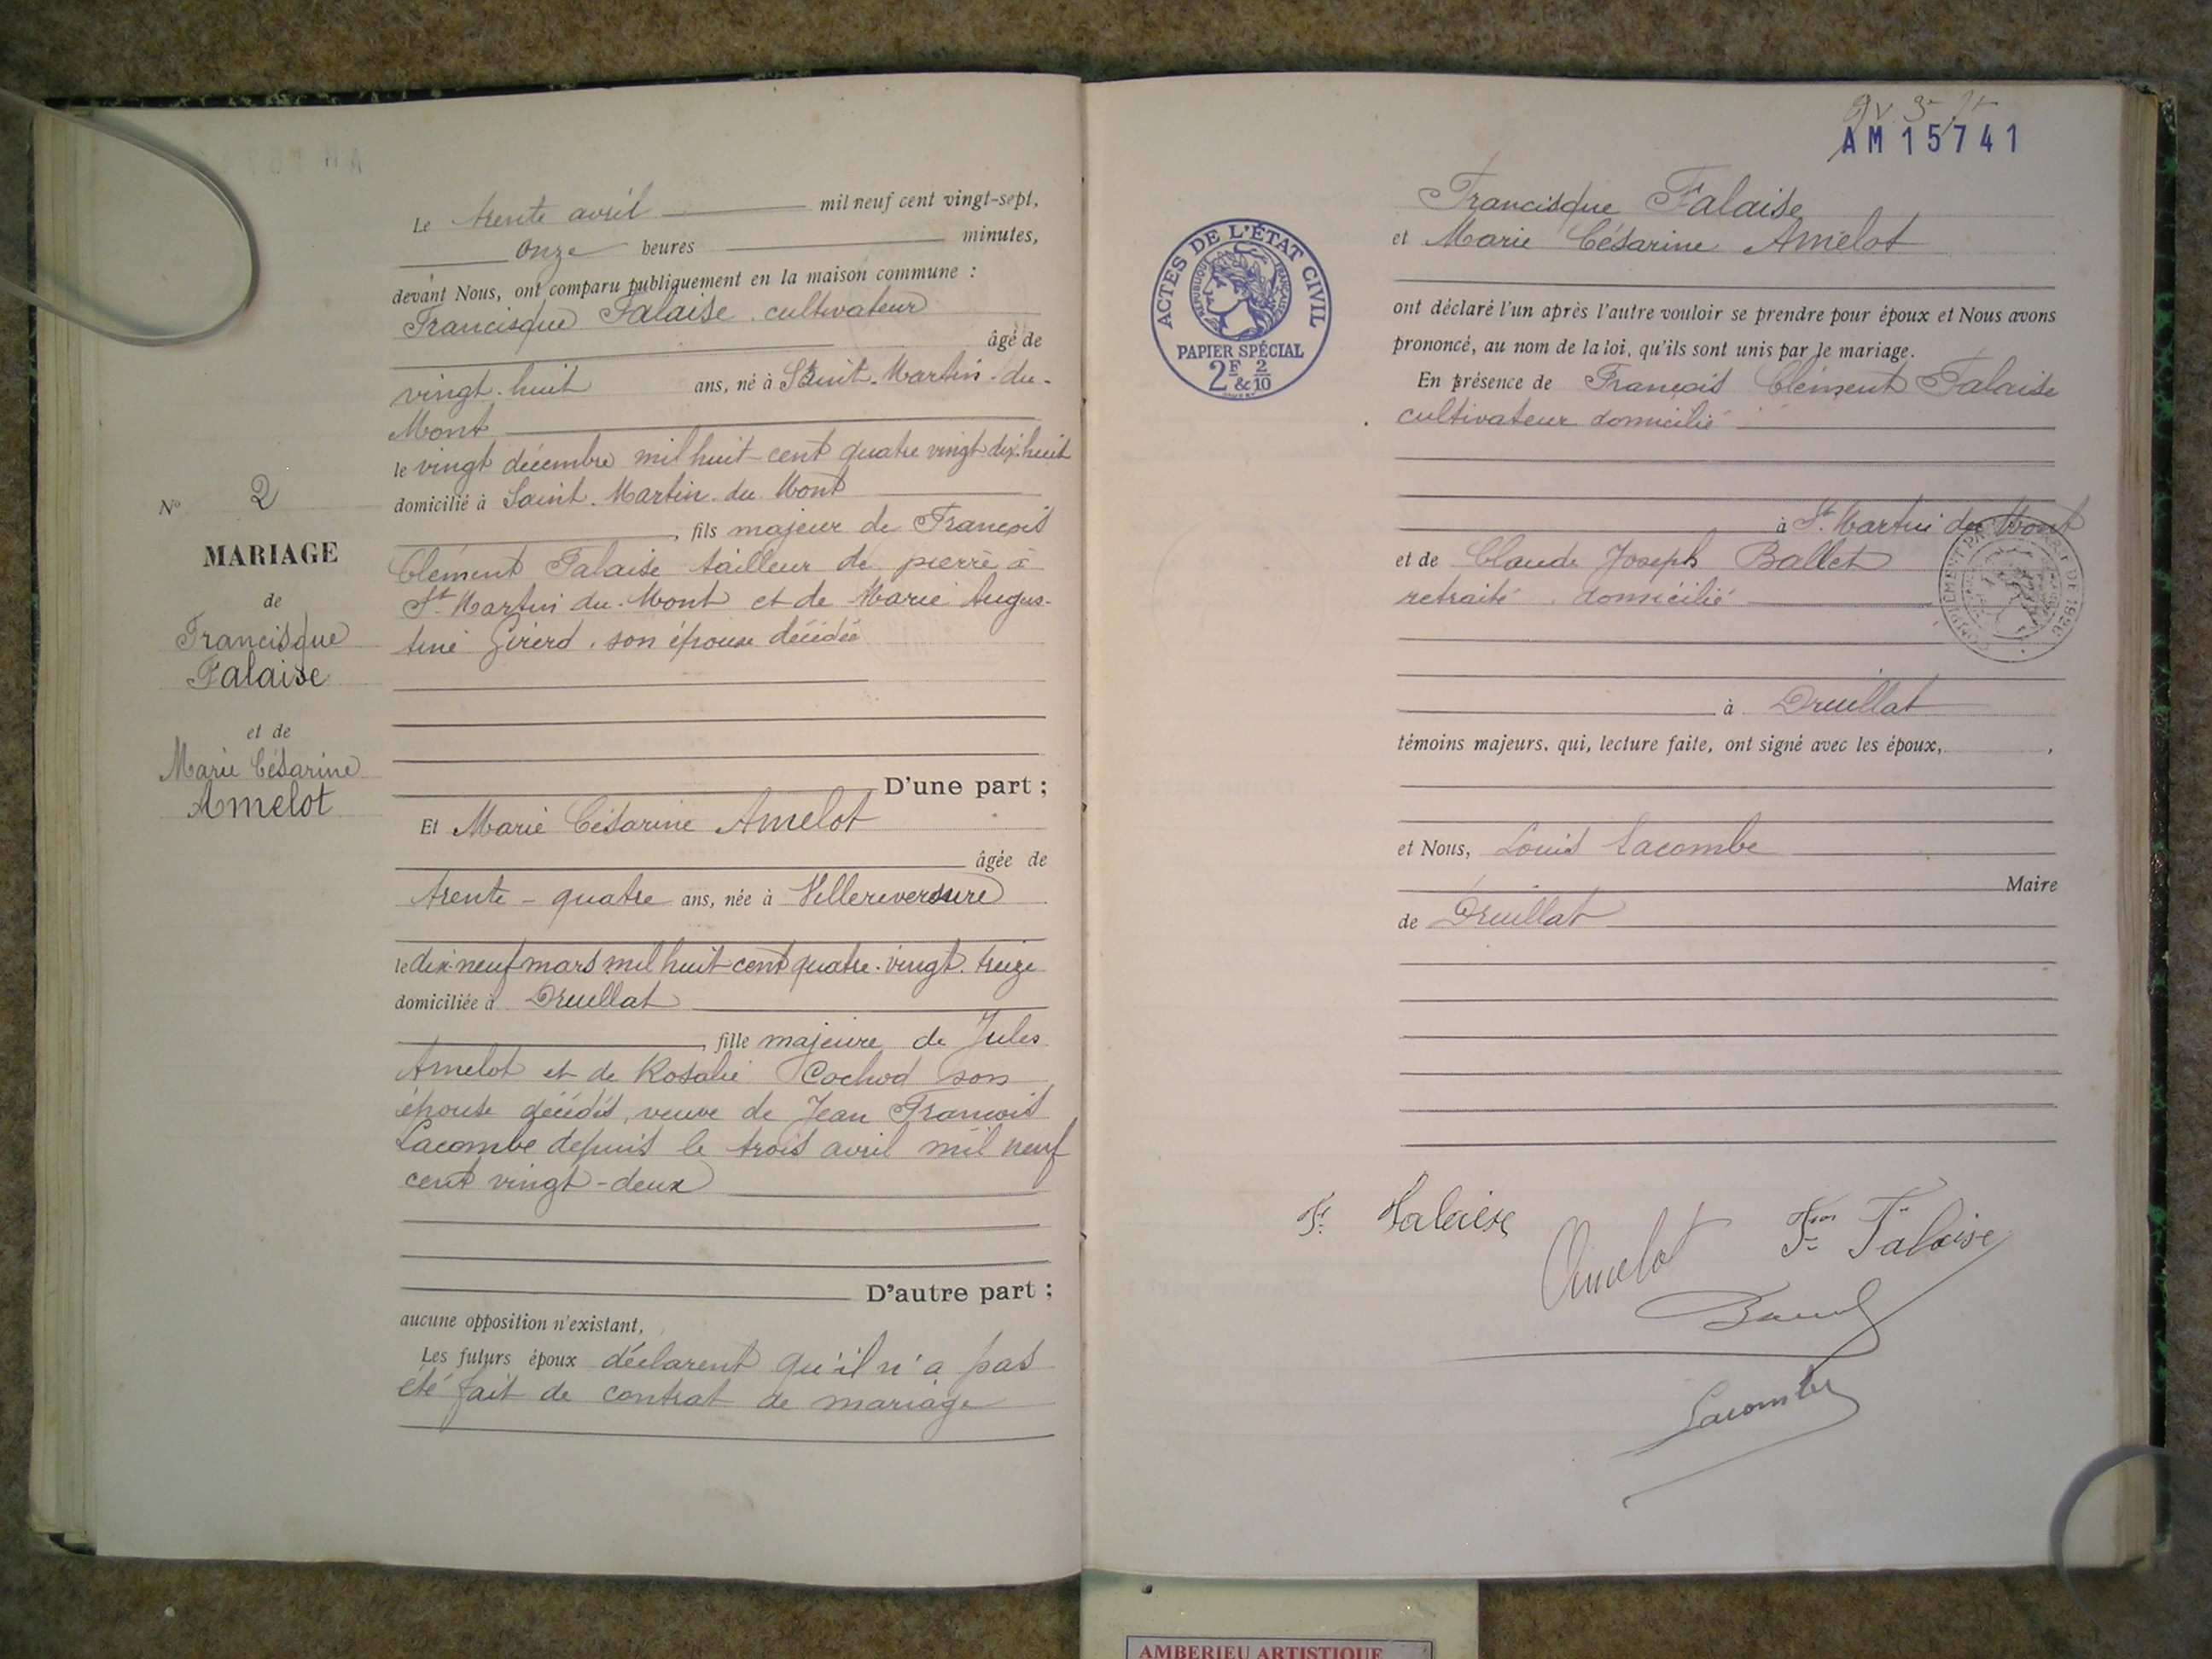 Le trente avril mil neuf cent vingt-sept,
onze heures minutes,
devant Nous, ont comparu publiquement en la maison commune :
Francisque Falaise, cultivateur
âgé de
vingt-huit ans, né à Saint-Martin-du-
Mont
le vingt décembre mil huit cent quatre vingt dix-huit
domicilié à Saint-Martin-du-Mont
, fils majeur de François
Clément Falaise tailleur de pierre à
St Martin-du-Mont et de Marie Augus-
tine Girerd, son épouse décédée
D'une part ;
Nº 2
MARIAGE
de
Francisque
Falaise
et de
Marie Césarine
Amelot
Et Marie Césarine Amelot
âgée de
trente-quatre ans, née à Villereversure
le dix-neuf mars mil huit cent quatre-vingt-treize
domiciliée à Druillat
, fille majeure de Jules
Amelot et de Rosalie Cochod son
épouse décédés, veuve de Jean François
Lacombe depuis le trois avril mil neuf
cent vingt-deux
D'autre part ;
aucune opposition n'existant,
Les futurs époux déclarent qu'il n'a pas
été fait de contrat de mariage
AM 15741
ACTES DE L'ÉTAT CIVIL
RÉPUBLIQUE FRANÇAISE
PAPIER SPÉCIAL
2F & 2/10
Francisque Falaise
et Marie Césarine Amelot
ont déclaré l'un après l'autre vouloir se prendre pour époux et Nous avons
prononcé, au nom de la loi, qu'ils sont unis par le mariage.
En présence de François Clément Falaise
cultivateur domicilié
à St Martin du Mont
et de Claude Joseph Ballet
retraité, domicilié
à Druillat
témoins majeurs, qui, lecture faite, ont signé avec les époux, ,
et Nous, Louis Lacombe
Maire
de Druillat
Fr. Falaise
Amelot
Falaise
Lacombe
AMBERIEU ARTISTIQUE